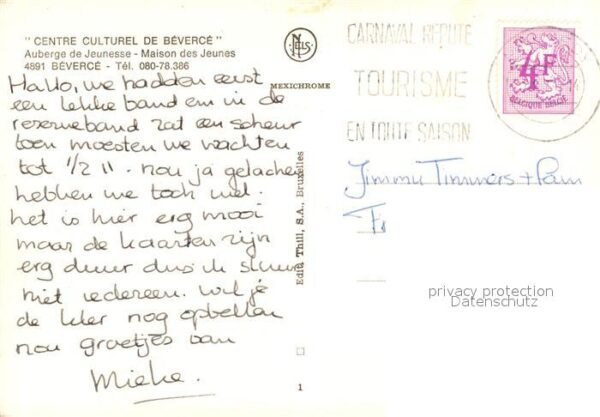 " CENTRE CULTUREL DE BÉVERCÉ "
Auberge de Jeunesse - Maison des Jeunes
4891 BÉVERCÉ - Tél. 080-78.386
NELS
MEXICHROME
Hallo, we hadden eerst
een lekke band em in de
reserveband zat een scheur
toen moesten we wachten
tot 1/2 11. nou ja gelachen
hebben we toch wel.
het is hier erg mooi
maar de kaarten zijn
erg duur dus ik stuur
niet iedereen. wil je
de nog opbellen
nou groetjes van
Mieke.
Edit. Thill, S.A., Bruxelles
1
CARNAVAL REPUTE
TOURISME
EN TOUTE SAISON
4F
BELGIQUE BELGIË
Jimmy Timmers + Pam
privacy protection
Datenschutz